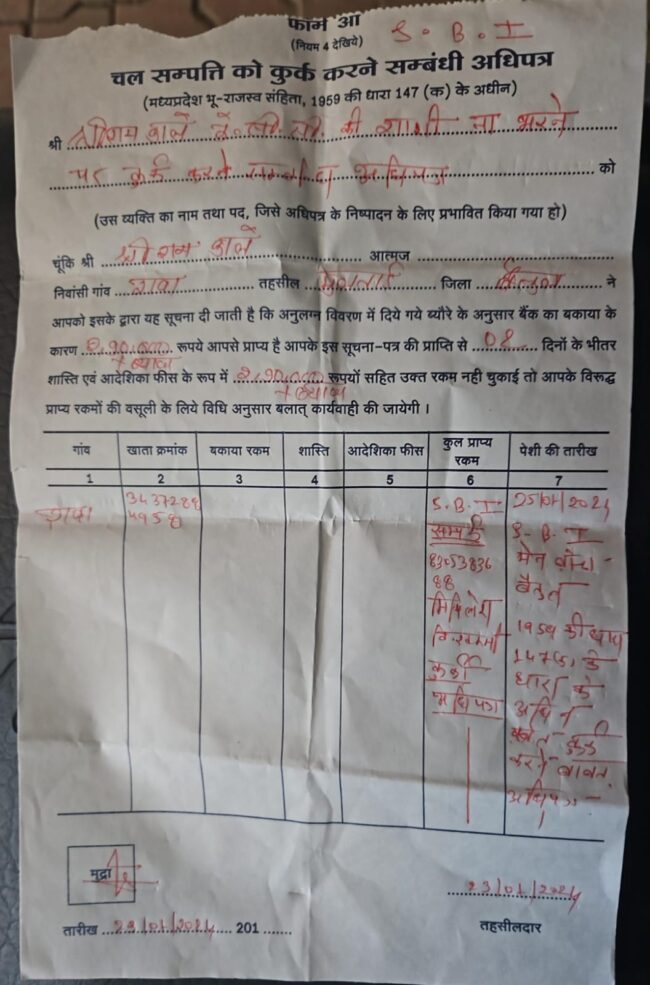 फार्म आ
(नियम 4 देखिये) S. B. I
चल सम्पत्ति को कुर्क करने सम्बंधी अधिपत्र
(मध्यप्रदेश भू-राजस्व संहिता, 1959 की धारा 147 (क) के अधीन)
श्री श्रीराम डाले के.सी.सी. की राशी ना भरने
पर कुर्क करने को
(उस व्यक्ति का नाम तथा पद, जिसे अधिपत्र के निष्पादन के लिए प्रभावित किया गया हो)
चूंकि श्री श्रीराम डाले आत्मज
निवांसी गांव तहसील मुलताई जिला बैतुल ने
आपको इसके द्वारा यह सूचना दी जाती है कि अनुलग्न विवरण में दिये गये ब्यौरे के अनुसार बैंक का बकाया के
कारण 2,90,000 रूपये आपसे प्राप्य है आपके इस सूचना-पत्र की प्राप्ति से 08 दिनों के भीतर
+ ब्याज
शास्ति एवं आदेशिका फीस के रूप में 2,90,000 रूपयों सहित उक्त रकम नही चुकाई तो आपके विरूद्ध
+ ब्याज
प्राप्य रकमों की वसूली के लिये विधि अनुसार बलात् कार्यवाही की जायेगी ।
गांव खाता क्रमांक बकाया रकम शास्ति आदेशिका फीस कुल प्राप्य रकम पेशी की तारीख
1 2 3 4 5 6 7
3437288
4958
S. B. I
सम्पर्क
83053836
88
मिथिलेश
विश्वकर्मा
कुर्की
अधिपत्र
25/01/2024
S. B. I
मेन ब्रांच -
बैतुल
1959 की धारा
147 के
धारा के
अधिन
कुर्क
करने बाबत
अधिपत्र -
मुद्रा
23/01/2024
तारीख 23/01/2024 201 तहसीलदार